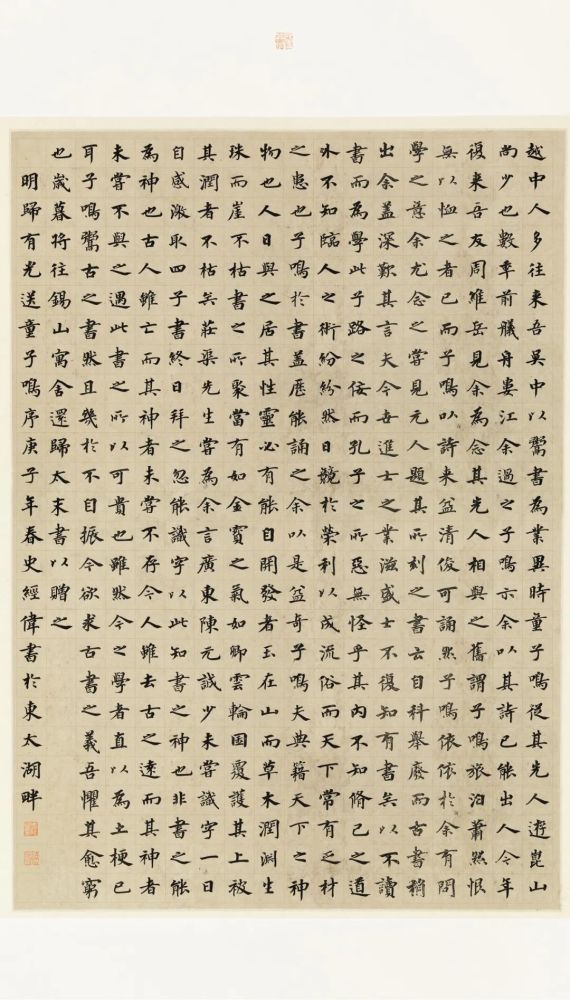 越中人多往来吾吳中以鬻書為業異時童子鳴從其先人遊崑山
尚少也數年前艤舟婁江余過之子鳴示余以其詩已能出人今年
復来吾友周維岳見余為念其先人相與之舊謂子鳴旅泊蕭然恨
無以恤之者已而子鳴以詩来益清俊可誦然子鳴依依於余有問
學之意余尤念之嘗見元人題其所刻之書云自科舉廢而古書稍
出余蓋深歎其言夫今吾進士之業滋盛士不復知有書矣以不讀
書而為學此子路之佞而孔子之所惡無怪乎其內不知脩己之道
外不知臨人之術紛紛然日競於榮利以成流俗而天下常有乏材
之患也子鳴於書蓋歷能誦之余以是益奇子鳴夫典籍天下之神
物也人日與之居其性靈必有能自開發者玉在山而草木潤淵生
珠而崖不枯書之所聚當有如金寶之氣如卿雲輪囷覆護其上被
其潤者不枯矣莊渠先生嘗為余言廣東陳元誠少未嘗識字一日
自感激取四子書終日拜之忽能識字以此知書之神也非書之能
為神也古人雖亡而其神者未嘗不存今人雖去古之遠而其神者
未嘗不與之遇此書之所以可貴也雖然今之學者直以為土梗已
耳子鳴鬻古之書然且幾於不自振今欲求古書之義吾懼其愈窮
也歲暮将往錫山寓舍還歸太末書以贈之
明歸有光送童子鳴序庚子年春史經偉書於東太湖畔